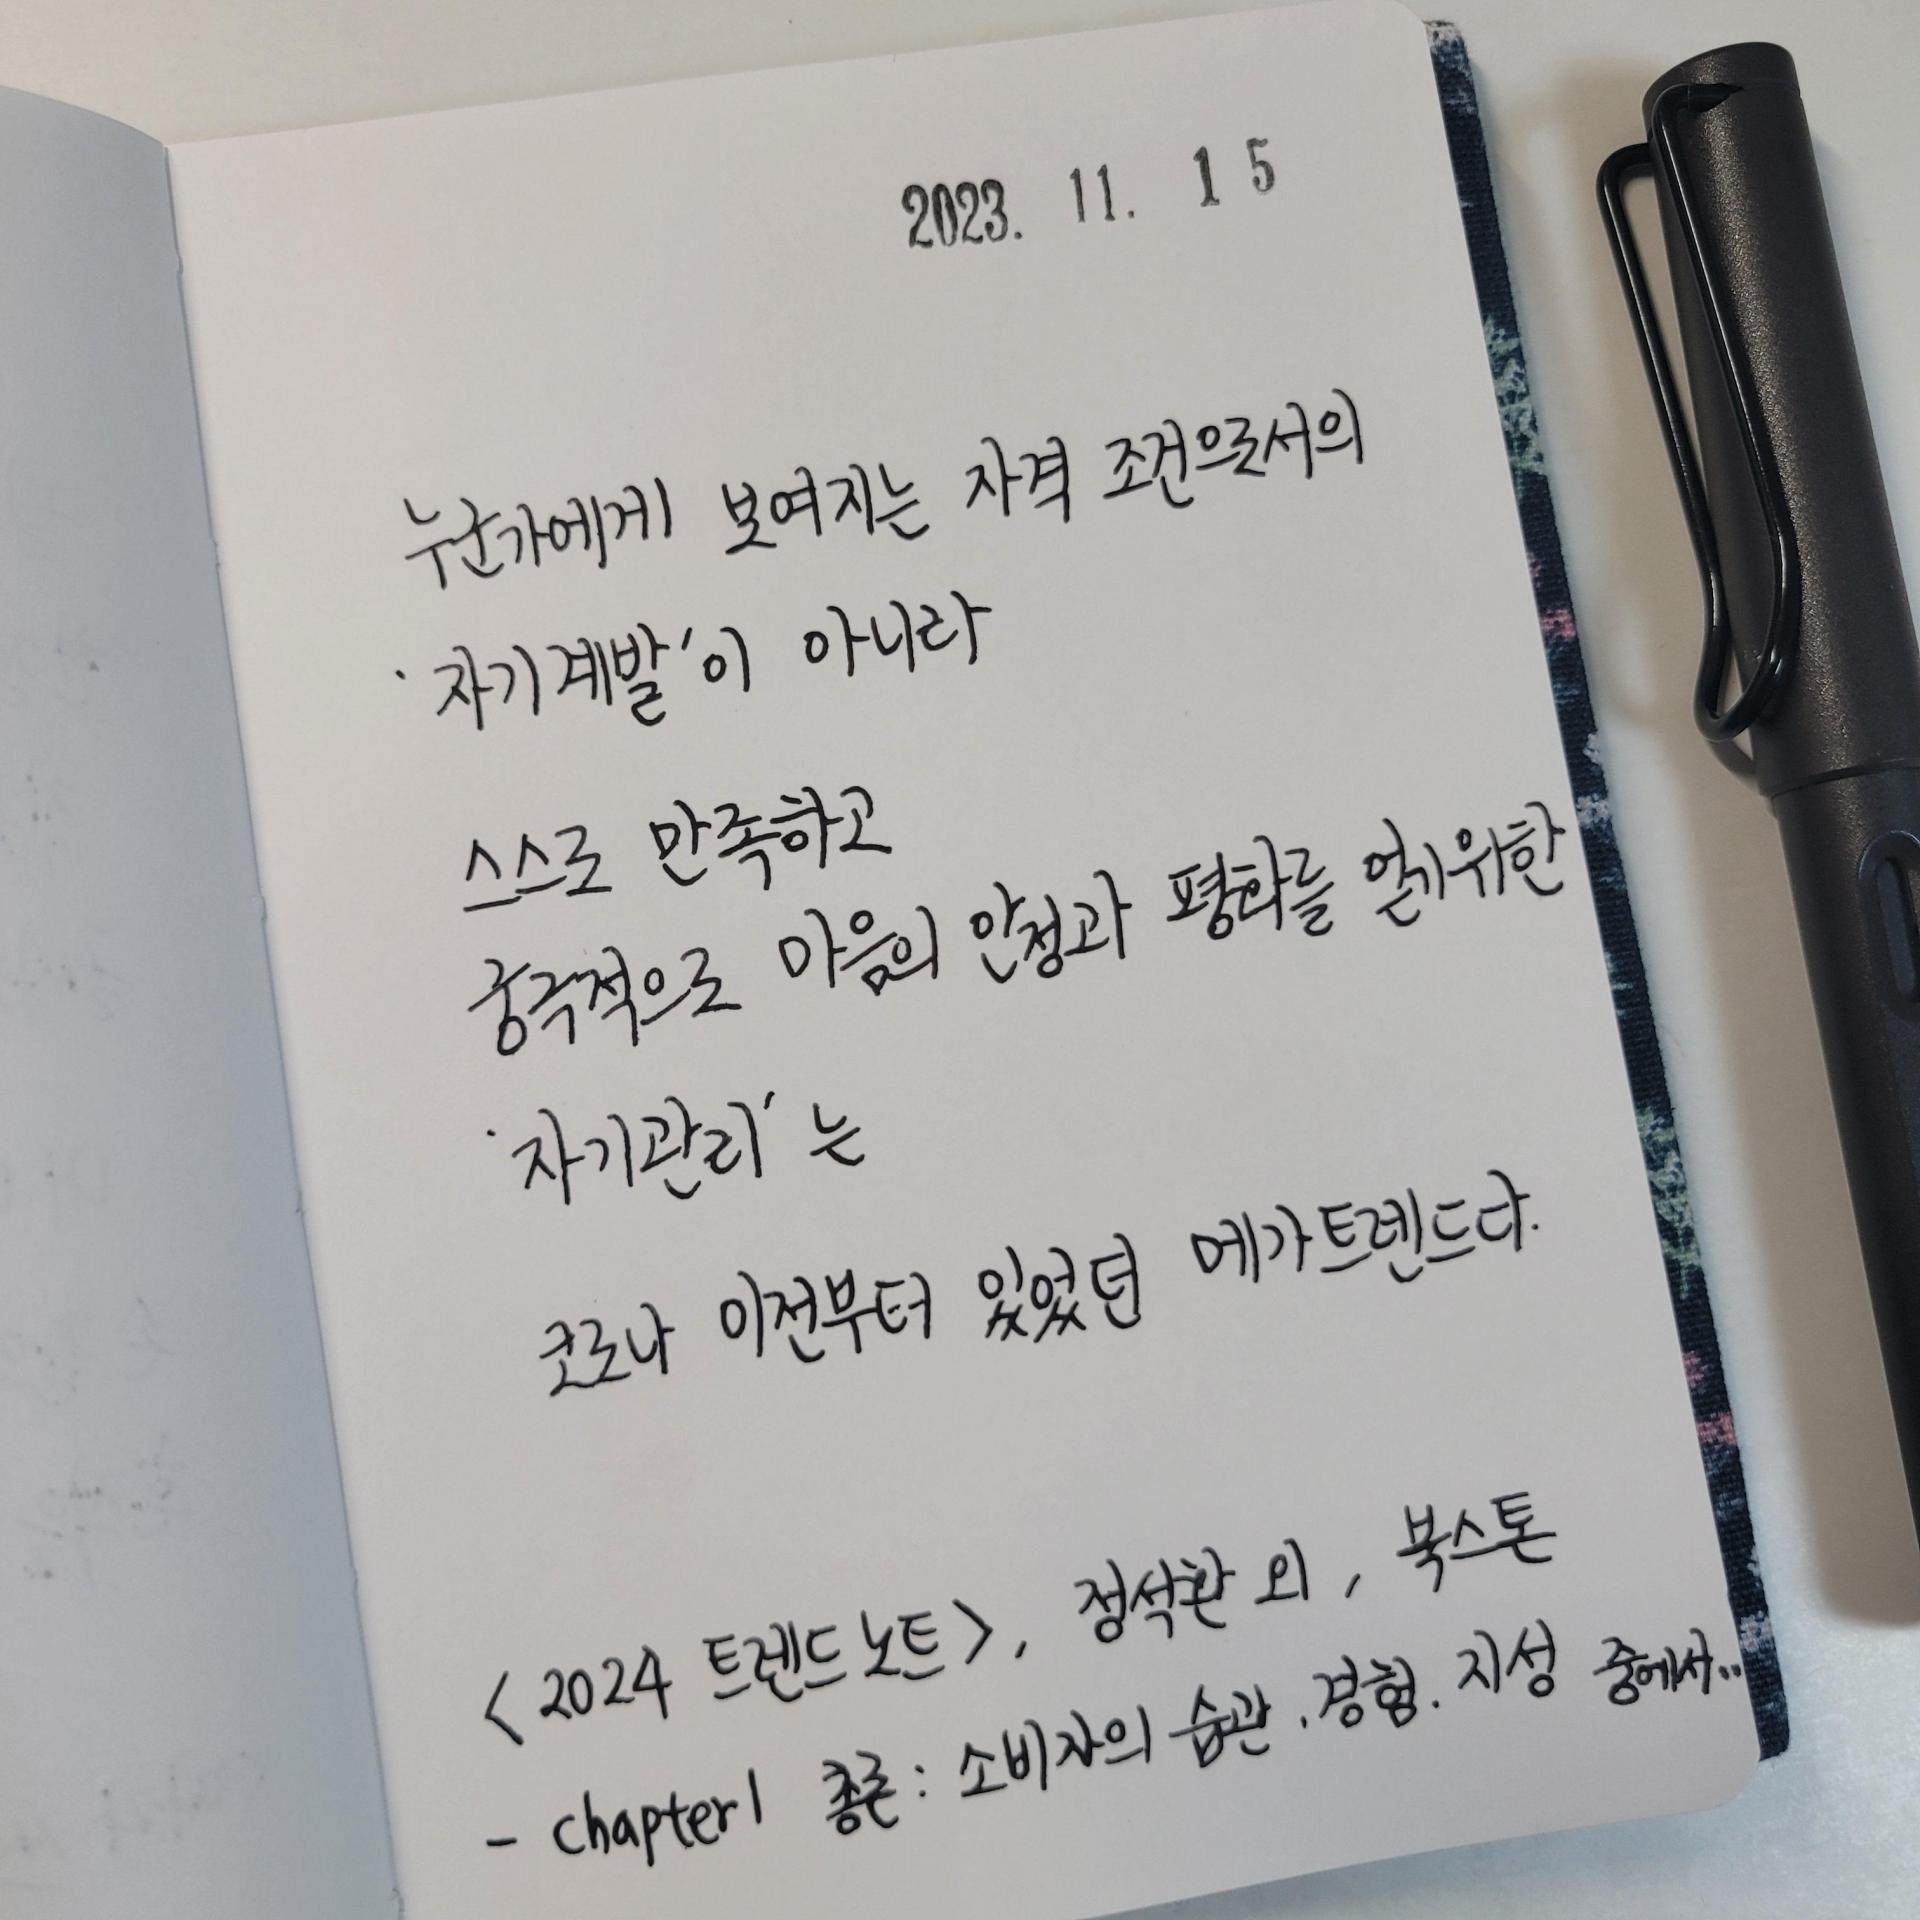 2023. 11. 15
누군가에게 보여지는 자격 조건으로서의
'자기계발'이 아니라
스스로 만족하고
궁극적으로 마음의 안정과 평화를 얻기위한
'자기관리'는
코로나 이전부터 있었던 메가트렌드다.
<2024 트렌드 노트>, 정석환 외, 북스톤
- chapter1 총론: 소비자의 습관.경험.지성 중에서..